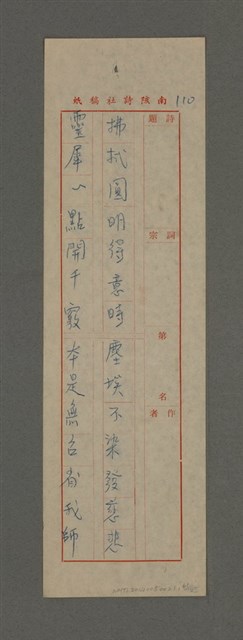 110
南陔詩社稿紙
詩題
詞宗
第 名
作者
拂拭圓明得意時塵埃不染發慈悲
靈犀一點開千竅本是無台尚我師